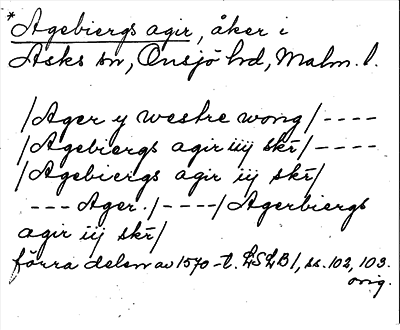 *Agebiergs agir, åker i
Asks sn, Onsjö hd, Malm. l.
/Ager y westre wong/----
/Agebiergs agir iiij skr̄/----
/Agebiergs agir iij skr̄/
---Ager./----/Agerbiergs
agir iij skr̄/
förra delen av 1570-t. LSLB1, ss. 102, 103.
orig.